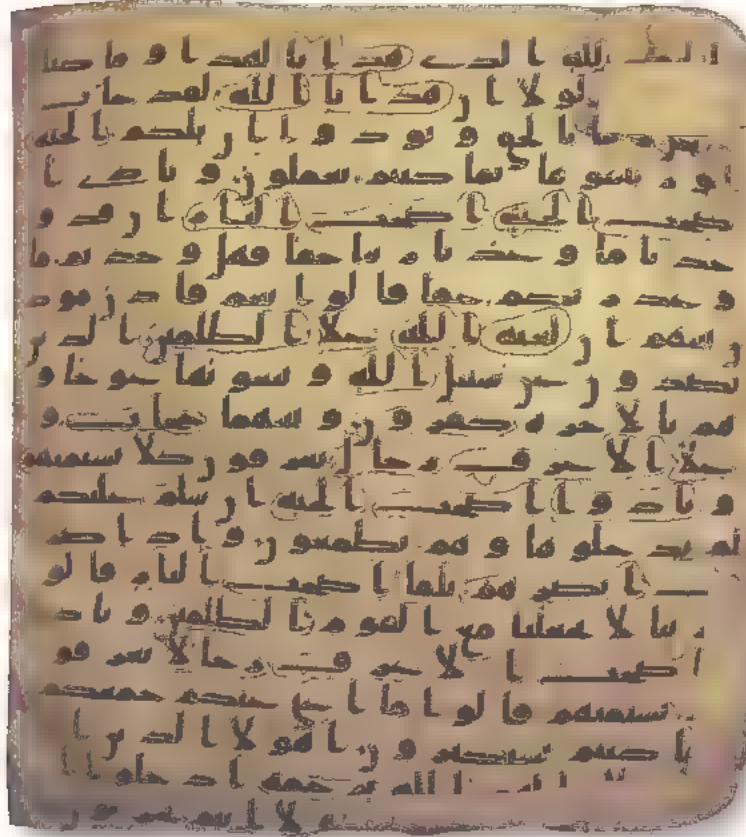 الحمد لله الذى هدانا لهذا وما كنا
لولا ان هدانا الله لقد جات
ربنا بالحق ونودوا ان تلكم الجنه
موها بما كنتم تعملون ونادى ا
صحب الجنه اصحب النار ان قد و
جدنا ما وعدنا ربنا حقا فهل وجدتم ما
وعد ربكم حقا قالوا نعم فاذن موذ
ن بينهم ان لعنه الله على الظلمين الذين
يصدون عن سبيل الله ويبغونها عوجا و
هم بالاخره كفرون وبينهما حجاب و
على الاعرف رجال يعرفون كلا بسيميهم
ونادوا اصحب الجنه ان سلم عليكم
لم يدخلوها وهم يطمعون واذا صر
فت ابصرهم تلقا اصحب النار قالو
ا ربنا لا تجعلنا مع القوم الظلمين وناد
ى اصحب الاعرف رجالا يعرفو
نهم بسيميهم قالوا ما اغنى عنكم جمعكم
كنتم تستكبرون اهولا الذين ا
لا ينالهم الله برحمه ادخلوا ا
ولا انتم تحزنون